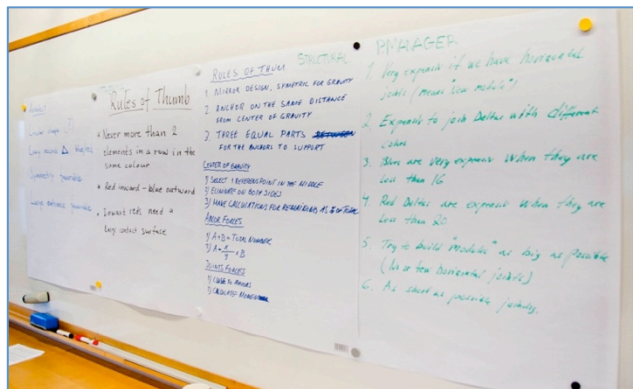 Rules of Thumb
• Never more than 2
elements in a row in the
same colour
• Red inward - blue outward
• Inward reds need a
large contact surface
STRUCTURAL
RULES OF THUM
1. MIRROR DESIGN, SYMETRIC FOR GRAVITY
2 ANCHOR ON THE SAME DISTANCE
FROM CENTER OF GRAVITY
3 THREE EQUAL PARTS
FOR THE BUILDERS TO SUPPORT
CENTER OF GRAVITY
1) SELECT 1 REFERENS POINT IN THE MIDDLE
2) ELIMINATE ON BOTH SIDES
3) MAKE CALCULATIONS FOR REMAINING AS OF TOTAL
FORCES
1) A+B = TOTAL NUMBER
2) A = x
y
* B
JOINTS FORCES
1) CLOSE TO
2) CALCULATE
PMANAGER
1. Very expensiv if we have horizontal
joints (means "new module")
2. Expensiv to join Deltas with different
colors
3. Blue are very expensiv when they are
less than 16
4. Red Deltas are expensiv when they are
less than 20
5. Try to build "modules" as big as possible
(as few horizontal joints)
6. As short as possible joints.